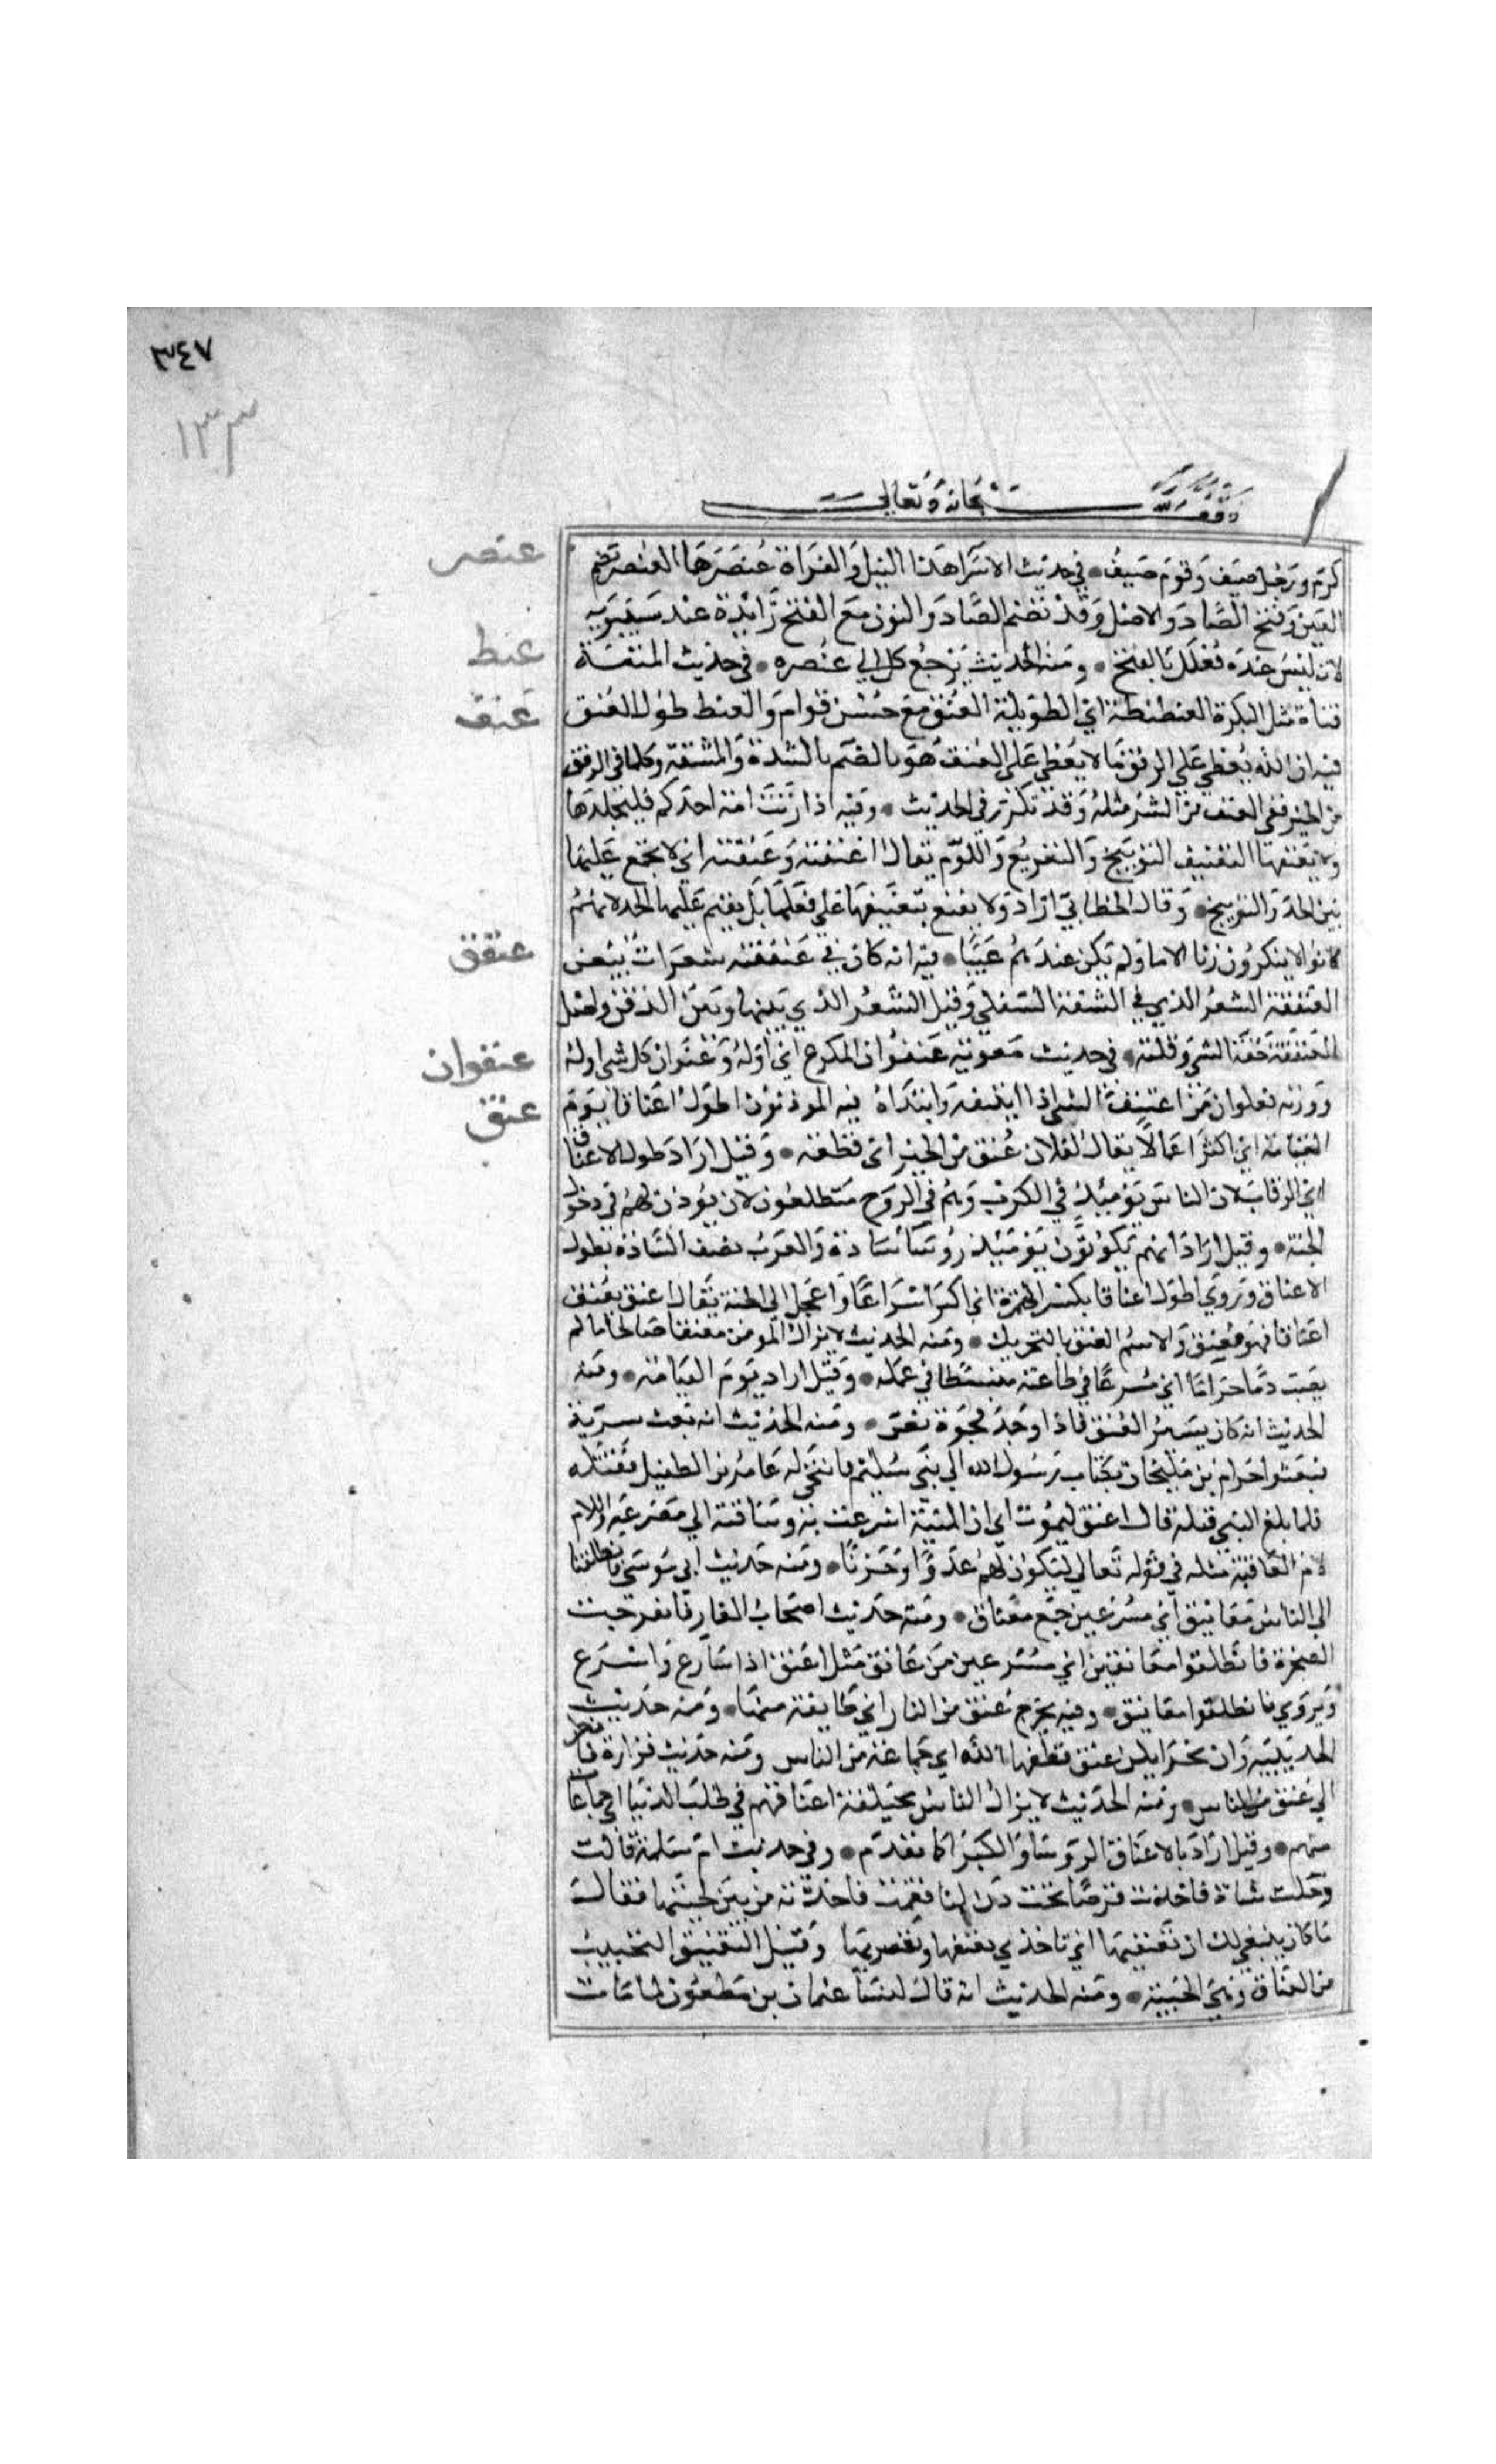 ٣٤٧
١٣٣
وقف لله سبحانه وتعالى
كرم ورجل صيف وقوم صيف • في حديث الاسرا هذا النيل والفراة عنصرهما العنصر بضم
العين وفتح الصاد والاصل وقد تضم الصاد والنون مع الفتح زائدة عند سيبويه
لانه ليس عنده فعلل بالفتح • ومنه الحديث يرجع كل الى عنصره • في حديث المتعة
فتاة مثل البكرة العنطنطة اي الطويلة العنق مع حسن قوام والعنط طول العنق
فيه ان الله يعطي على الرفق ما لا يعطي على العنف هو بالضم بالشدة والمشقة وكلما في الرفق
من الخير ففي العنف من الشر مثله وقد تكرر في الحديث • وفيه اذا زنت امة احدكم فليجلدها
ولا يعنفها التعنيف التوبيخ والتقريع واللوم يقال اعنفته وعنفته اي لا يجمع عليها
بين الحد والتوبيخ • وقال الخطابي اراد ولا يقنع بتعنيفها على فعلها بل يقيم عليها الحد لانهم
كانوا لا ينكرون زنا الاما ولم يكن عندهم عيبا • فيه انه كان في عنفقته شعرات بيض
العنفقة الشعر الذي في الشفة السفلى وقيل الشعر الذي بينها وبين الذقن واصل
العنفقة خفة الشي وقلته • في حديث معوية عنفوان المكرع اي اوله وعنفوان كل شي اوله
ووزنه فعلوان من اعتنف الشي اذا ايتنفه وابتداه فيه الموذنون اطول اعناقا يوم
القيامة اي اكثر اعمالا يقال لفلان عنق من الخير اي قطعة • وقيل اراد طول الاعناق
اي الرقاب لان الناس يومئذ في الكرب وهم في الروح متطلعون لان يوذن لهم في دخول
الجنة • وقيل اراد انهم يكونون يومئذ روسا سادة والعرب تصف السادة بطول
الاعناق وروي اطول اعناقا بكسر الهمزة اي اكثر اسراعا واعجل الى الجنة يقال اعنق يعنق
اعناقا فهو معنق والاسم العنق بالتحريك • ومنه الحديث لا يزال المومن معنقا صالحا ما لم
يصب دما حراما اي مسرعا في طاعته منبسطا في عمله • وقيل اراد يوم القيامة • ومنه
الحديث انه كان يسير العنق فاذا وجد فجوة نص • ومنه الحديث انه بعث سرية
فبعثوا حرام بن ملحان بكتاب رسول الله الى بني سليم فانتحى له عامر بن الطفيل فقتله
فلما بلغ النبي قتله قال اعنق ليموت اي ان المنية اسرعت به وساقته الى مصرعه واللام
لام العاقبة مثله في قوله تعالى ليكون لهم عدوا وحزنا • ومنه حديث ابى موسى فانطلقنا
الى الناس معانيق اي مسرعين جمع معناق • ومنه حديث اصحاب الغار فانفرجت
الصخرة فانطلقوا معانقين اي مسرعين من عانق مثل اعنق اذا سارع واسرع
ويروي فانطلقوا معانيق • وفيه يخرج عنق من النار اي طايفة منها • ومنه حديث
الحديبية وان نجوا يكن عنق قطعها الله اي جماعة من الناس ومنه حديث فزارة فانظر
الى عنق من الناس • ومنه الحديث لا يزال الناس مختلفة اعناقهم في طلب الدنيا اي جماعات
منهم • وقيل اراد بالاعناق الروسا والكبرا كما تقدم • وفي حديث ام سلمة قالت
دخلت شاة فاخذت قرصا تحت دن لنا فقمت فاخذته من بين لحييها فقالت
ما كان ينبغي لك ان تعنقيها اي تاخذي بعنقها وتعصريها وقيل التعنيق التخييب
من العناق وهي الخيبة • ومنه الحديث انه قال لنسا عثمان بن مظعون لما مات
عنصر
عنط
عنف
عنفق
عنفوان
عنق